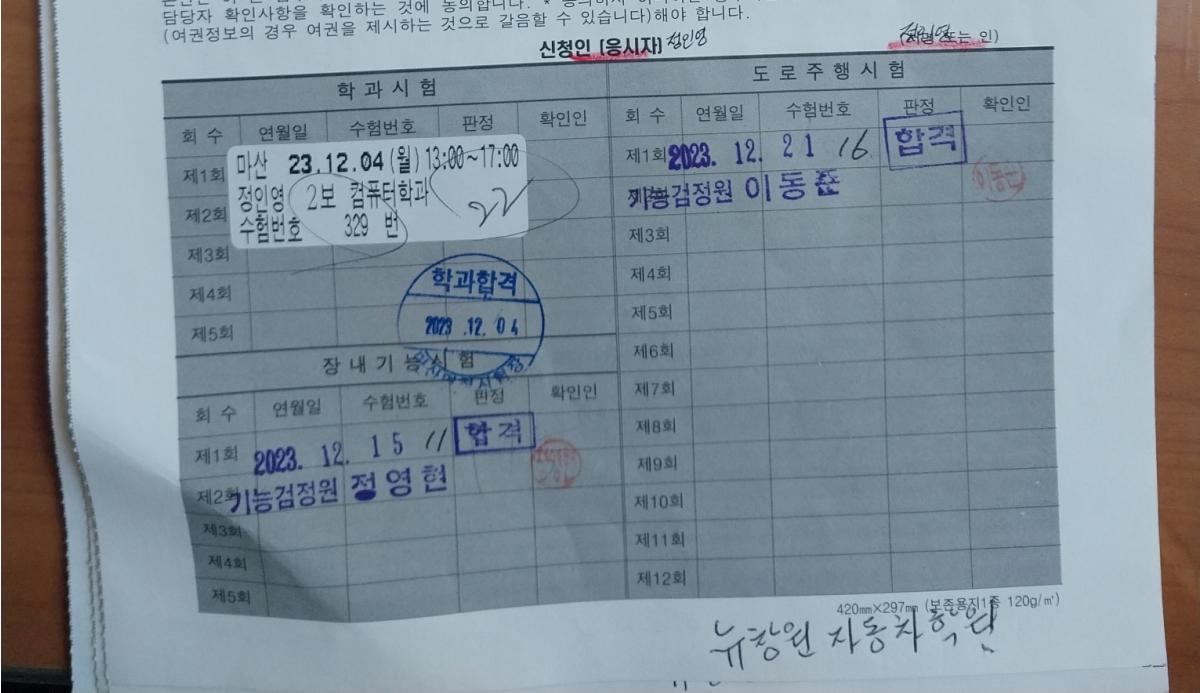 담당자 확인사항을 확인하는 것에 동의합니다. *
(여권정보의 경우 여권을 제시하는 것으로 갈음할 수 있습니다)해야 합니다.
신청인 [응시자] 정인영 정인영 (서명 또는 인)
학 과 시 험
회 수 연월일 수험번호 판정 확인인
제1회 마산 23.12.04 (월) 13:00~17:00
제2회 정인영 2보 컴퓨터학과 22
수험번호 329 번
제3회
제4회
제5회
학과합격
2023 .12. 04
장 내 기 능 시 험
회 수 연월일 수험번호 판정 확인인
제1회 2023. 12. 15 11 합격
제2회 기능검정원 정영현
제3회
제4회
제5회
도 로 주 행 시 험
회 수 연월일 수험번호 판정 확인인
제1회 2023. 12. 21 16 합격
기능검정원 이동준
이동준
제3회
제4회
제5회
제6회
제7회
제8회
제9회
제10회
제11회
제12회
420㎜×297㎜ (보존용지1종 120g/㎡)
뉴창원 자동차학원